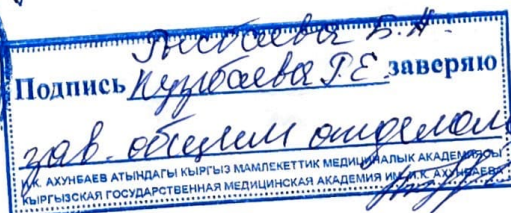 Рысбаева Б.А.
Подпись Нурбаева Р.Е. заверяю
зав. общим отделом
И.К. АХУНБАЕВ АТЫНДАГЫ КЫРГЫЗ МАМЛЕКЕТТИК МЕДИЦИНАЛЫК АКАДЕМИЯСЫ
КЫРГЫЗСКАЯ ГОСУДАРСТВЕННАЯ МЕДИЦИНСКАЯ АКАДЕМИЯ ИМ. И.К. АХУНБАЕВА